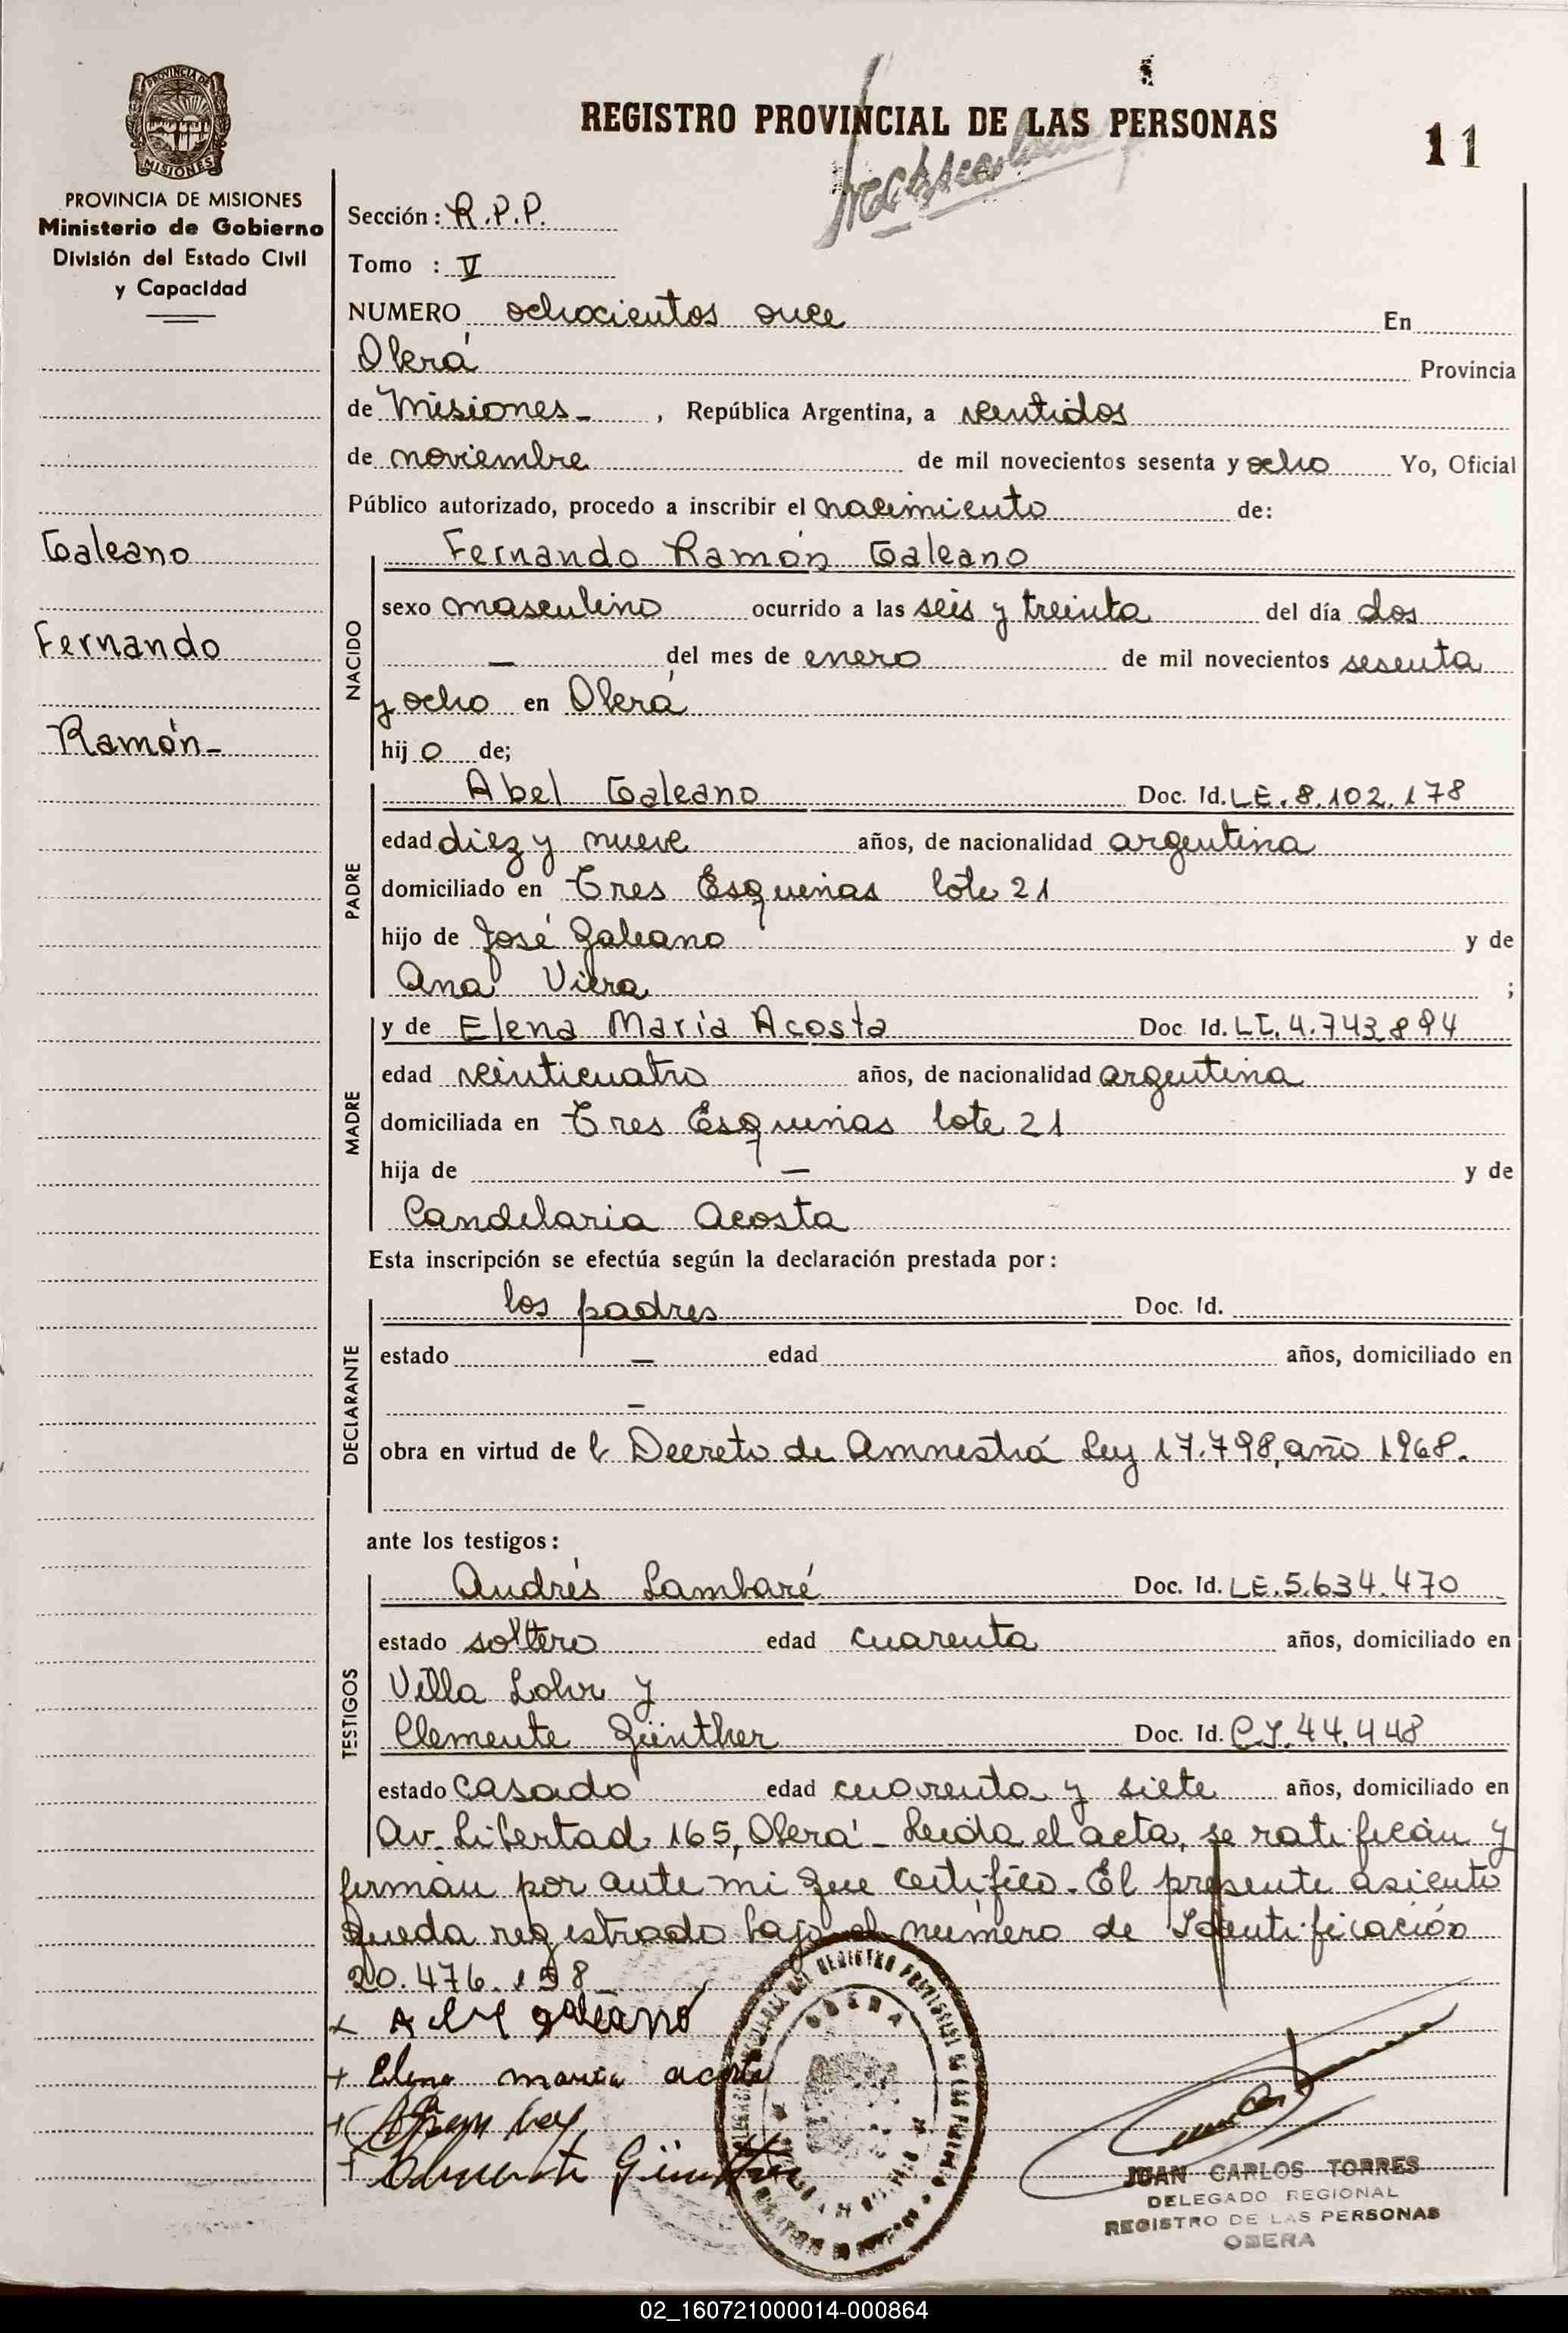 REGISTRO PROVINCIAL DE LAS PERSONAS
11
PROVINCIA DE MISIONES
MISIONES
PROVINCIA DE MISIONES
Ministerio de Gobierno
División del Estado Civil
y Capacidad
Galeano
Fernando
Ramón-
Sección: R.P.P.
Tomo : V
NUMERO ochocientos once En
Oberá Provincia
de Misiones- , República Argentina, a veintidos
de noviembre de mil novecientos sesenta y ocho Yo, Oficial
Público autorizado, procedo a inscribir el nacimiento de:
NACIDO
Fernando Ramón Galeano
sexo masculino ocurrido a las seis y treinta del día dos
— del mes de enero de mil novecientos sesenta
y ocho en Oberá
hij o de;
PADRE
Abel Galeano Doc. Id. LE. 8.102.178
edad diez y nueve años, de nacionalidad argentina
domiciliado en Tres Esquinas lote 21
hijo de José Galeano y de
Ana Viera ;
MADRE
y de Elena María Acosta Doc Id. LC. 4.743.894
edad veinticuatro años, de nacionalidad argentina
domiciliada en Tres Esquinas lote 21
hija de — y de
Candelaria Acosta
Esta inscripción se efectúa según la declaración prestada por:
DECLARANTE
los padres Doc. Id.
estado — edad años, domiciliado en
—
obra en virtud de l Decreto de Amnestiá Ley 17.798, año 1968.
ante los testigos:
TESTIGOS
Andrés Lambaré Doc. Id. LE. 5.634.470
estado soltero edad cuarenta años, domiciliado en
Villa Lohr y
Clemente Günther Doc. Id. C.I. 44.448
estado casado edad cuarenta y siete años, domiciliado en
Av. Libertad 165, Oberá - Leida el acta, se ratificán y
firmán por ante mi que certifico. El presente asiento
queda registrado bajo el número de Identificación
20.476.158
x Abel galeano
+ Elena maria acosta
+
+ Clemente Günther
OBERA
JUAN CARLOS TORRES
DELEGADO REGIONAL
REGISTRO DE LAS PERSONAS
OBERA
02_160721000014-000864